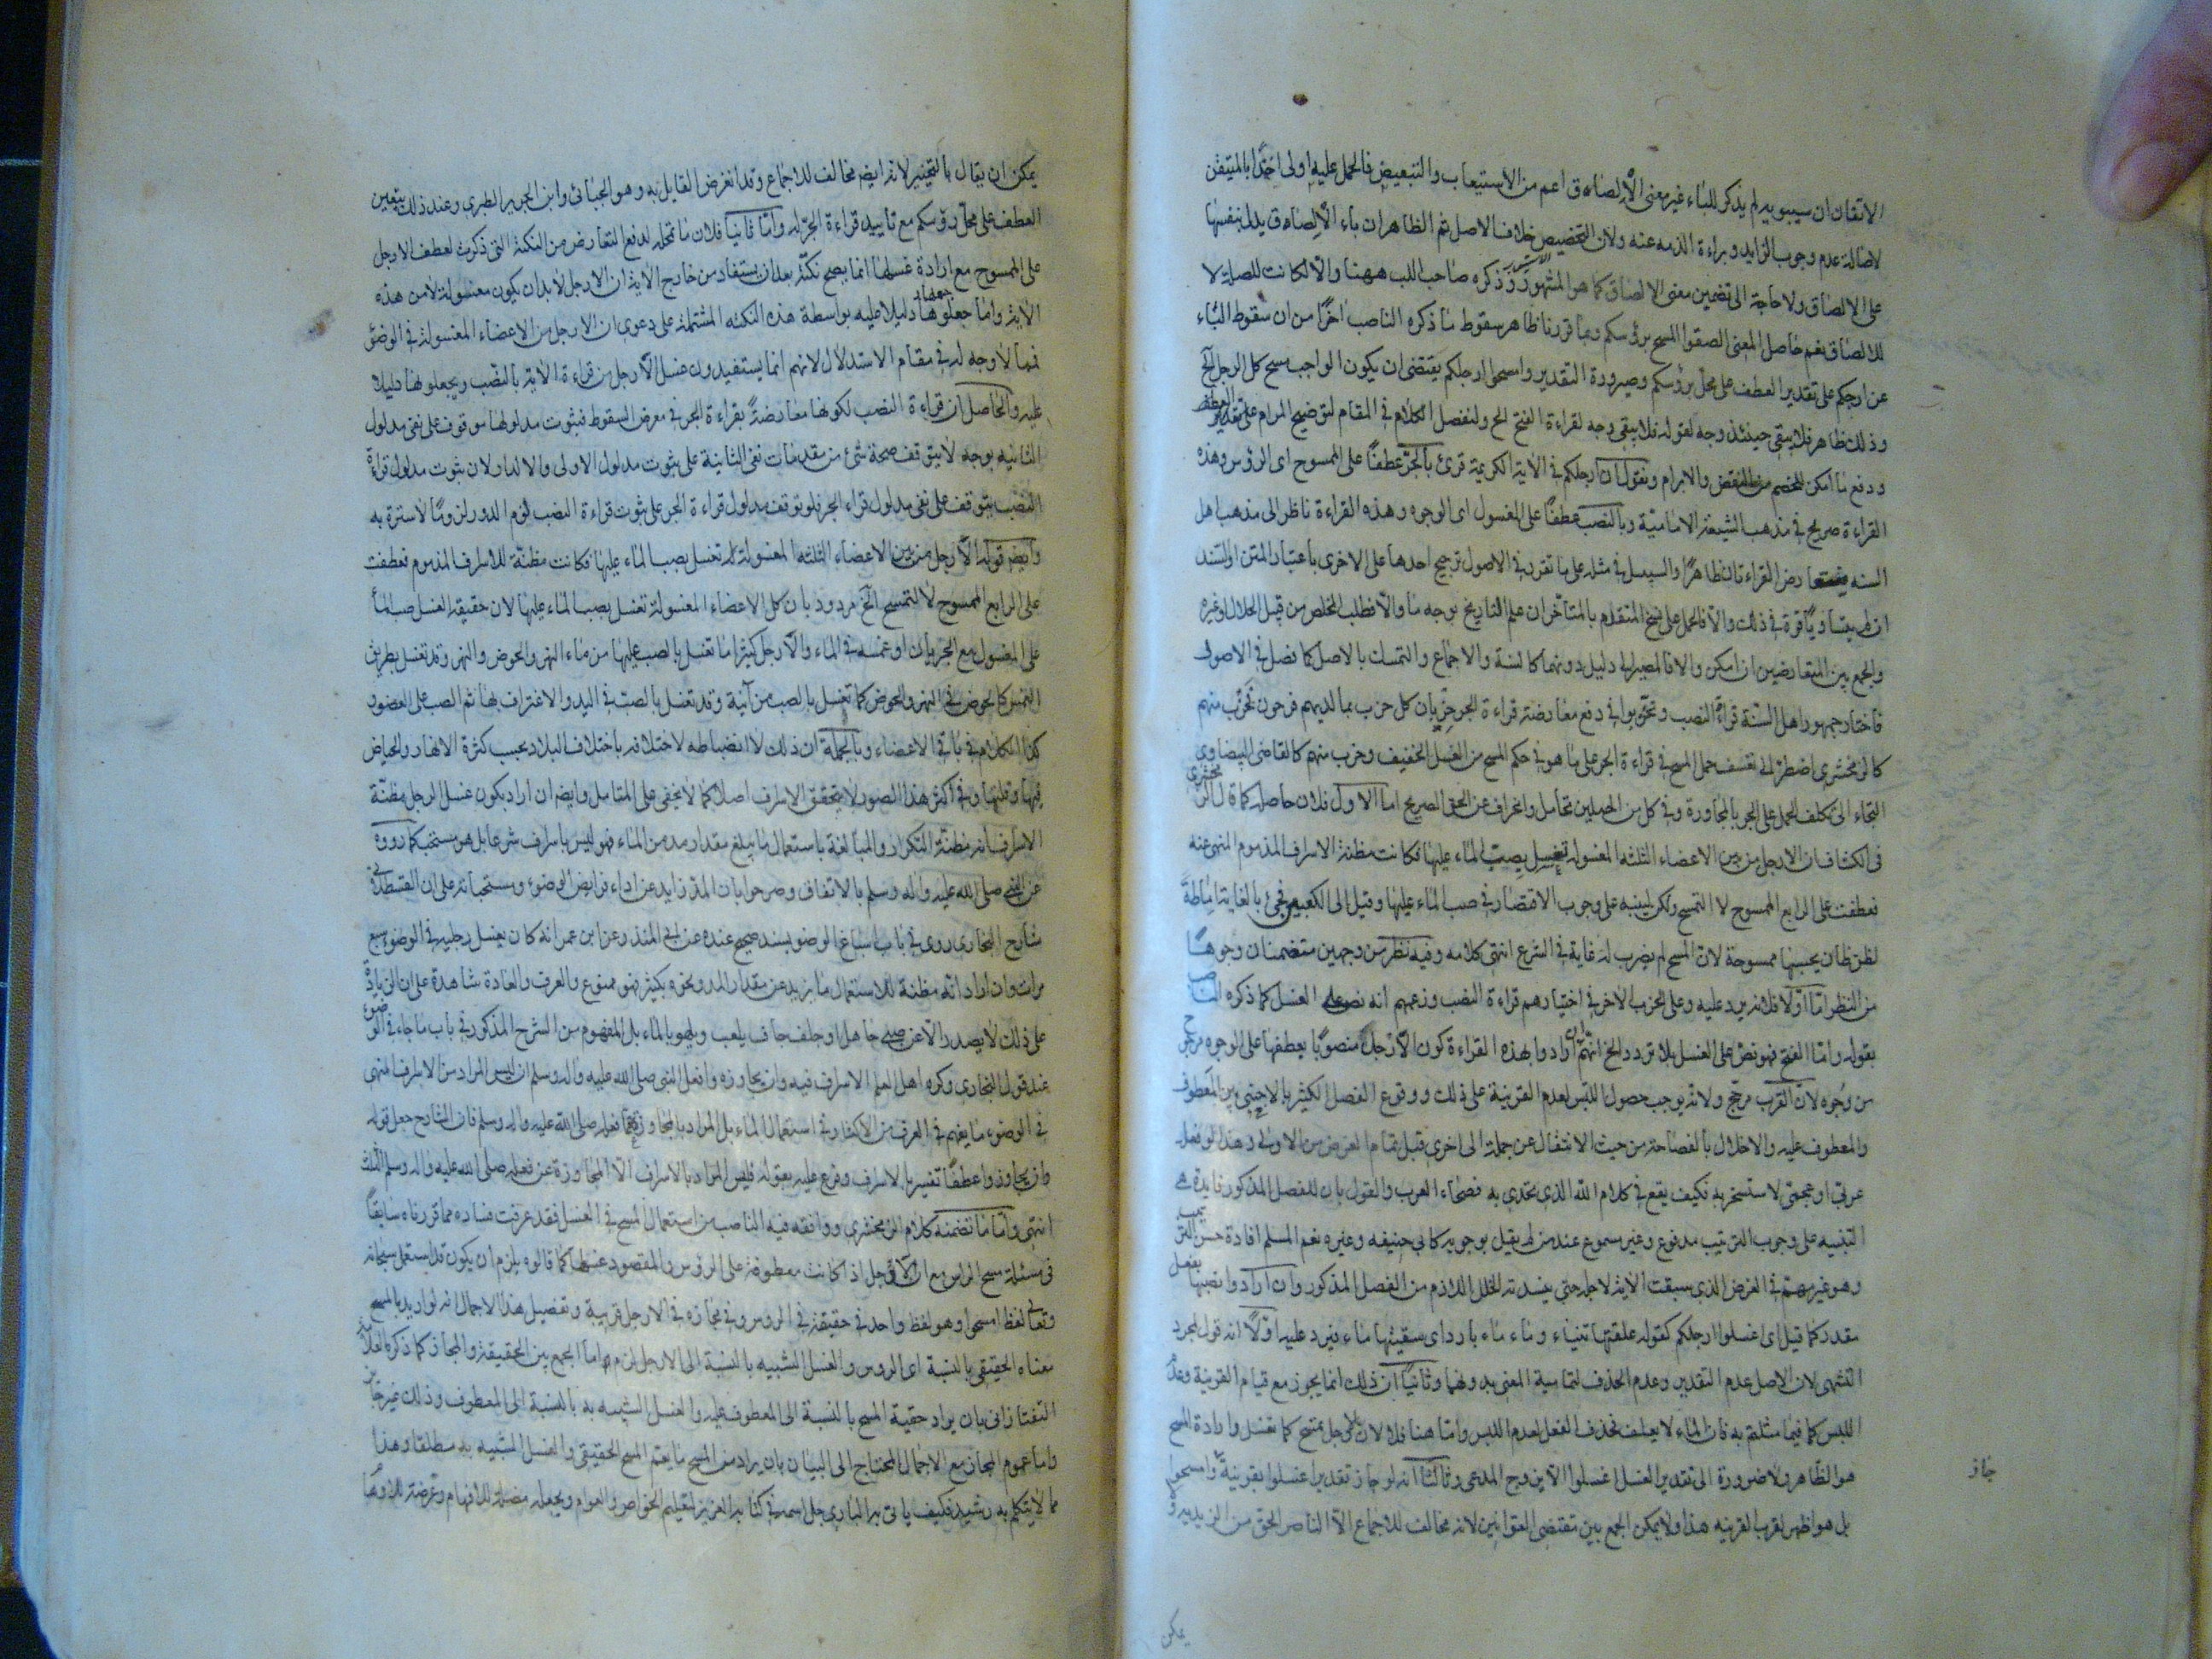 الاتقان ان سيبويه لم يذكر للباء غير معنى الالصاق اعم من الاستيعاب والتبعيض فالحمل عليه اولى اخذا بالمتيقن
لاصالة عدم وجوب الزايد وبراءة الذمه عنه ولان التخصيص خلاف الاصل ثم الظاهر ان باء الالصاق يدل بنفسها
على الالصاق ولا حاجة الى تضمين معنى الالصاق كما هو المشهور وذكره صاحب اللب ههنا والا لكانت للصلة لا
للالصاق نعم حاصل المعنى الصقوا المسح برؤسكم وبما قررنا ظاهر سقوط ما ذكره الناصب اخرا من ان سقوط الباء
عن ارجلكم على تقدير العطف على محل برؤسكم وصيرورة التقدير وامسحوا ارجلكم يقتضى ان يكون الواجب مسح كل الرجل الخ
وذلك ظاهر فلا يبقى حينئذ وجه لقوله فلا يبقى وجه لقراءة الفتح الخ ولنفصل الكلام في المقام لتوضيح المرام على تقدير العطف
ودفع ما امكن للخصم من النقض والابرام ونقول ان ارجلكم في الاية الكريمة قرئ بالجر عطفا على الممسوح اى الرؤس وهذه
القراءة صريح في مذهب الشيعة الامامية وبالنصب عطفا على المغسول اى الوجوه وهذه القراءة ناظر الى مذهب اهل
السنه فتعارض القراءتان ظاهرا والسبيل في مثله على ما تقرر في الاصول ترجيح احدها على الاخرى باعتبار المتن او السند
ان لم يتساويا قوة في ذلك والا فالحمل على نسخ المتقدم بالمتأخر ان علم التاريخ بوجه ما والا فطلب المخلص من قبل الحال او غيره
والجمع بين المتعارضين ان امكن والا فالمصير الى دليل دونهما كالسنة والاجماع والتمسك بالاصل كما فصل في الاصول
فاختار جمهور اهل السنة قراءة النصب وتحزبوا في دفع معارضة قراءة الجر حزبان كل حزب بما لديهم فرحون فحزب منهم
كالزمخشرى اضطر الى تعسف حمل المسح في قراءة الجر على ما هو في حكم المسح من الغسل الخفيف وحزب منهم كالقاضى البيضاوى
التجاء الى تكلف الحمل على الجر بالمجاورة وفي كل من الحملين تحامل واغراف عن الحق الصريح اما الاول فلان حاصله كما قال الزمخشرى
فى الكشاف ان الارجل من بين الاعضاء الثلثه المغسولة تغسل بصب الماء عليها فكانت مظنة الاسراف المذموم المنهى عنه
فعطفت على الرابع الممسوح لا التمسح ولكن لينبه على وجوب الاقتصار في صب الماء عليها وقيل الى الكعبين فجئ بالغاية اماطة
لظن ظان يحسبها ممسوحة لان المسح لم يضرب له غاية في الشرع انتهى كلامه وفيه نظر من وجهين متضمنان وجوها
من النظر اما اولا فلانه يرد عليه وعلى الحزب الاخر في اختيارهم قراءة النصب وزعمهم انه نص على الغسل كما ذكره الناصب
بقوله واما الفتح فهو نص على الغسل بلا تردد الخ انهم ان ارادوا بهذه القراءة كون الارجل منصوبا بعطفها على الوجوه مرجوح
من وجوه لان القرب مرجح ولانه يوجب حصول اللبس لعدم القرينة على ذلك ووقوع الفصل الكثير بالاجنبى بين المعطوف
والمعطوف عليه والاخلال بالفصاحة من حيث الانتقال عن جملة الى اخرى قبل تمام الغرض من الاولى وهذا لو فعله
عربى او عجمى لاستسخر به فكيف يقع في كلام الله الذى تحدى به فصحاء العرب والقول بان للفصل المذكور فايدة هى
التنبيه على وجوب الترتيب مدفوع وغير مسموع عند من لم يقل بوجوبه كابى حنيفه وغيره نعم المسلم افادة حسن الترتيب
وهو غير مهتم في الغرض الذى سيقت الاية لاجله حتى يسد به الخلل اللازم من الفصل المذكور وان ارادوا نصبها بفعل
مقدر كما قيل اى اغسلوا ارجلكم كقوله علفتها تبناء وماء باردا اى سقيتها ماء فيرد عليه اولا انه قول بمجرد
التشهى لان الاصل عدم التقدير وعدم الحذف لتمامية المعنى بدونهما وثانيا ان ذلك انما يجوز مع قيام القرينة وعدم
اللبس كما فيما مثلتم به فان الماء لا يعلف فحذف الفعل لعدم اللبس واما هنا فلا لان الارجل تمسح كما تغسل وارادة المسح
هو الظاهر ولا ضرورة الى تقدير الغسل وثالثا انه لو جاز تقدير اغسلوا بقرينة وامسحوا
بل هو اظهر لقرب القرينه هذا ولا يمكن الجمع بين مقتضى القرائتين لانه مخالف للاجماع الا الناصر الحق من الزيديه
جاز
يمكن
يمكن ان يقال بالتخيير لانه ايضا مخالف للاجماع وقد انقرض القايل به وهو الجبائى وابن الجرير الطبرى وعند ذلك يتعين
العطف على محل رؤسكم مع تاييد قراءة الجر له واما ثانيا فلان ما تمحله لدفع التعارض من النكتة التى ذكرت لعطف الارجل
على الممسوح مع ارادة غسلها انما يصح نكتة بعد ان يستفاد من خارج الاية ان الارجل لابد ان يكون مغسولة لا من هذه
الاية واما جعلها دليلا عليه بواسطة هذه النكته المشتملة على دعوى ان الارجل من الاعضاء المغسولة في الوضوء
فمما لا وجه له في مقام الاستدلال لانهم انما يستفيدون غسل الارجل من قراءة الاية بالنصب ويجعلونها دليلا
عليه والحاصل ان قراءة النصب لكونها معارضة بقراءة الجر في معرض السقوط فثبوت مدلولها موقوف على نفى مدلول
الثانيه بوجه لا يتوقف صحة شئ من مقدمات نفى الثانية على ثبوت مدلول الاولى والا لدار ولان ثبوت مدلول قراءة
النصب يتوقف على نفى مدلول قراءة الجر فلو توقف مدلول قراءة الجر على ثبوت قراءة النصب لزم الدور لزوما لا سترة به
وايضا قوله الارجل من بين الاعضاء الثلثه المغسولة تغسل بصب الماء عليها فكانت مظنة للاسراف المذموم فعطفت
على الرابع الممسوح لا لتمسح الخ مردود بان كل الاعضاء المغسولة تغسل بصب الماء عليها لان حقيقة الغسل صب الماء
على المغسول مع الجريان او غمسه في الماء والارجل كثيرا ما تغسل بالصب عليها من ماء النهر والحوض والنهر وقد تغسل بطريق
الغمس كالخوض في النهر والحوض كما تغسل بالصب من آنية وقد تغسل بالصب في اليد والاغتراف بها ثم الصب على العضو
كذا الكلام في باقى الاعضاء وبالجملة ان ذلك لا انضباط له لاختلافه باختلاف البلاد بحسب كثرة الانهار والحياض
فيها وقلتها وفى اكثر هذه الصور لا يتحقق الاسراف اصلا كما لا يخفى على المتامل وايضا ان اراد بكون غسل الرجل مظنة
الاسراف انه مظنة التكرار والمبالغة باستعمال ما يبلغ مقدار مد من الماء فهو ليس باسراف شرعا بل هو مستحب كما رووه
عن النبى صلى الله عليه واله وسلم بالاتفاق وصرحوا بان المد زايد عن اداء فرايض الوضوء ومستحباته على ان القسطلانى
شارح البخارى روى في باب اسباغ الوضوء بسند صحيح عنده عن ابن المنذر عن ابن عمر انه كان يغسل رجليه في الوضوء سبع
مرات وان اراد انه مظنة للاستعمال ما يزيد عن مقدار المد ونحوه بكثير فهو ممنوع والعرف والعادة شاهدة على ان الزيادة
على ذلك لا يصدر الا عن صبى جاهل او جلف جاف يلعب ويلهو بالماء بل المفهوم من الشرح المذكور في باب ما جاء في الوضوء
عند قول البخارى وكره اهل العلم الاسراف فيه وان يجاوزوا فعل النبى صلى الله عليه واله وسلم ان ليس المراد من الاسراف المنهى
في الوضوء ما يفهم في العرف من الاكثار في استعمال الماء بل المراد به المجاوزة عما فعله صلى الله عليه واله وسلم فان الشارح جعل قوله
وان يجاوزوا عطفا تفسيريا لاسراف وفرع عليه بقوله فليس المراد بالاسراف الا المجاوزة عن فعله صلى الله عليه واله وسلم الثلث
انتهى واما ما تضمنه كلام الزمخشرى ووافقه فيه الناصب من استعمال المسح في الغسل فقد عرفت فساده مما قررناه سابقا
في مسئلة مسح الراس مع ان الارجل اذا كانت معطوفة على الرؤس والمقصود غسلها كما قالوه يلزم ان يكون قد استعمل سبحانه
وتعالى لفظ امسحوا وهو لفظ واحد في حقيقته في الروس وفى مجازه في الارجل قريبة وتفصيل هذا الاجمال انه لو اريد بالمسح
معناه الحقيقى بالنسبة اى الروس والغسل الشبيه بالنسبة الى الارجل لزم اما الجمع بين الحقيقة والمجاز كما ذكره العلامة
التفتازانى بان يراد حقيقة المسح بالنسبة الى المعطوف عليه والغسل الشبيه به بالنسبة الى المعطوف وذلك غير جايز
واما عموم المجاز مع الاجمال المحتاج الى البيان بان يراد من المسح ما يعم المسح الحقيقى والغسل المشبيه به مطلقا وهذا
مما لا يتكلم به رشيد فكيف ياتى به البارى جل اسمه في كتابه العزيز لتعليم الخواص والعوام ويجعله مضلة للافهام وعرضة للاوهام